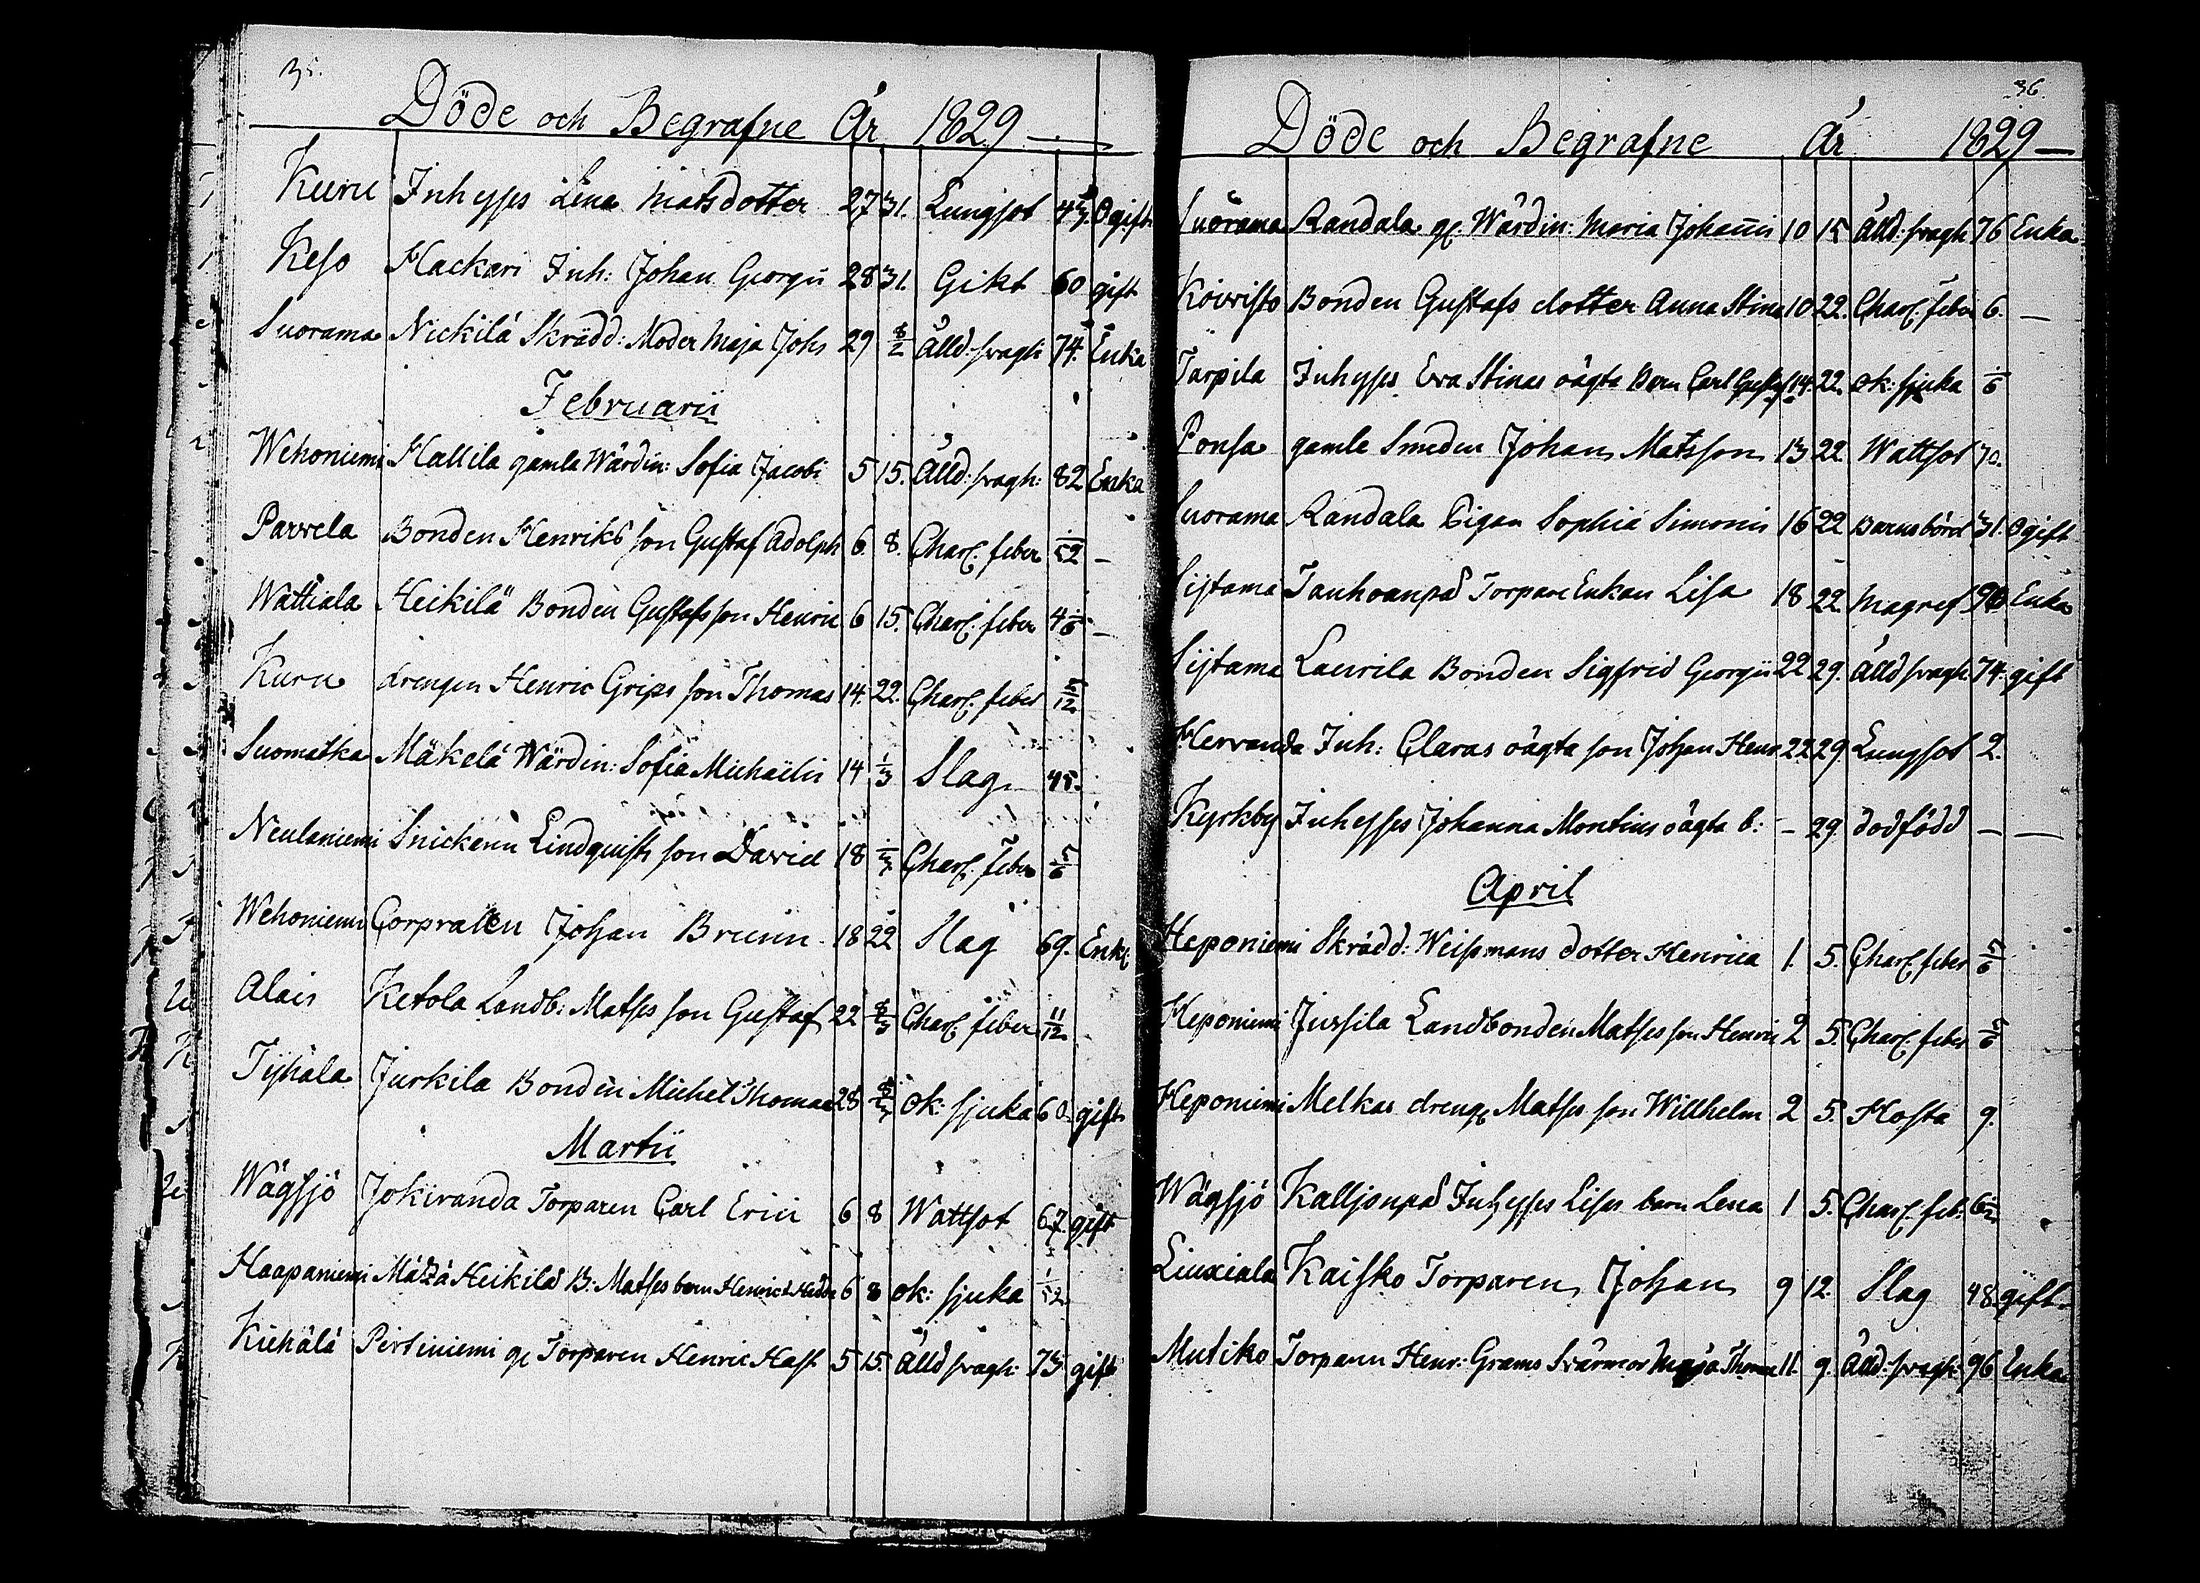 35.
Döde och Begrafne År 1829
Kuru Inhyses Lena Matsdotter 27 31. Lungsot Ogift
Keso Hackari Inh: Johan Georgii 28 31. Gikt 60 gift
Suorama Nickilä Skrädd: Moder Maja Johs 29 8/2 Ålld: svagh 74. Enka
Februarii
Wehoniemi Hallila gamla Wärdin: Sofia Jacobi 5 15. Ålld: svagh: 82 Enka
Pavvela Bonden Henriks son Gustaf Adolph 6. 8. Charl. feber 1/52 –
Wattiala Heikilä Bonden Gustafs son Henric 6 15. Charl. feber –
Kuru drengen Henric Grips son Thomas 14. 22. Charl. feber 5/12
Suomatka Mäkelä Wärdin: Sofia Michaelis 14 1/3 Slag 45.
Neulaniemi Snickarn Lindquists son David 18 Charl. feber 5/6
Wehoniemi Corpralen Johan Brunn 18 22 Slag 69. Enkl.
Alais Ketola Landb: Matses son Gustaf 22 8/3 Charl. feber 11/12
Tijhala Jurkila Bonden Michel Thomae 28 8/3 ok: sjuka 60 gift
Martii
Wägsjö Jokiranda Torparen Carl Erici 6 8 Wattsot 67. gift
Haapaniemi Heikilä B: Matses barn Henric 6 8 ok: sjuka 1/52
Kuhälä Pertiniemi gl Torparen Henric Hast 5 15. Ålld svagh: 73 gift
36.
Döde och Begrafne År 1829
Suorama Randala gl. Wärdin: Maria Johannis 10 15 Ålld: svagh 76 Enka
Koivisto Bonden Gustafs dotter Anna Stina 10 22. Charl. feber 6. –
Tarpila Inhyses Eva Stinas oägta Barn Carl Gustaf 14. 22. ok: sjuka 1/6
Ponsa gamle Smeden Johan Matsson 13 22. Wattsot 70.
Suorama Randala Pigan Sophia Simonis 16 22 Barnsbörd 31. Ogift
Sijtama Torpare Enkan Lisa 18 22 Magref Enka
Sijtama Laurila Bonden Sigfrid Georgii 22 29. Ålld svagh 74. gift
Hervanda Inh: Claras oägta son Johan Henr 22 29. Lungsot 2.
Kyrkby Inhyses Johanna Montins oägta b: – 29. dödfödd – –
April
Heponiemi Skrädd: Weissmans dotter Henrica 1. 5. Charl. feber 5/6
Heponiemi Jussila Landbonden Matses son Henric 2 5. Charl. feber 5/6
Heponiemi Melkas drengs Matses son Willhelm 2 5. Hosta 9.
Wägsjö Inhyses Lises barn Lena 1 5. Charl. feb:
Liuxiala Kaisko Torparen Johan 9 12. Slag 48. gift
Mutiko Torparen Henr: Grams Svärmor Maja Thomae 11. 9. Ålld: svagh 96 Enka